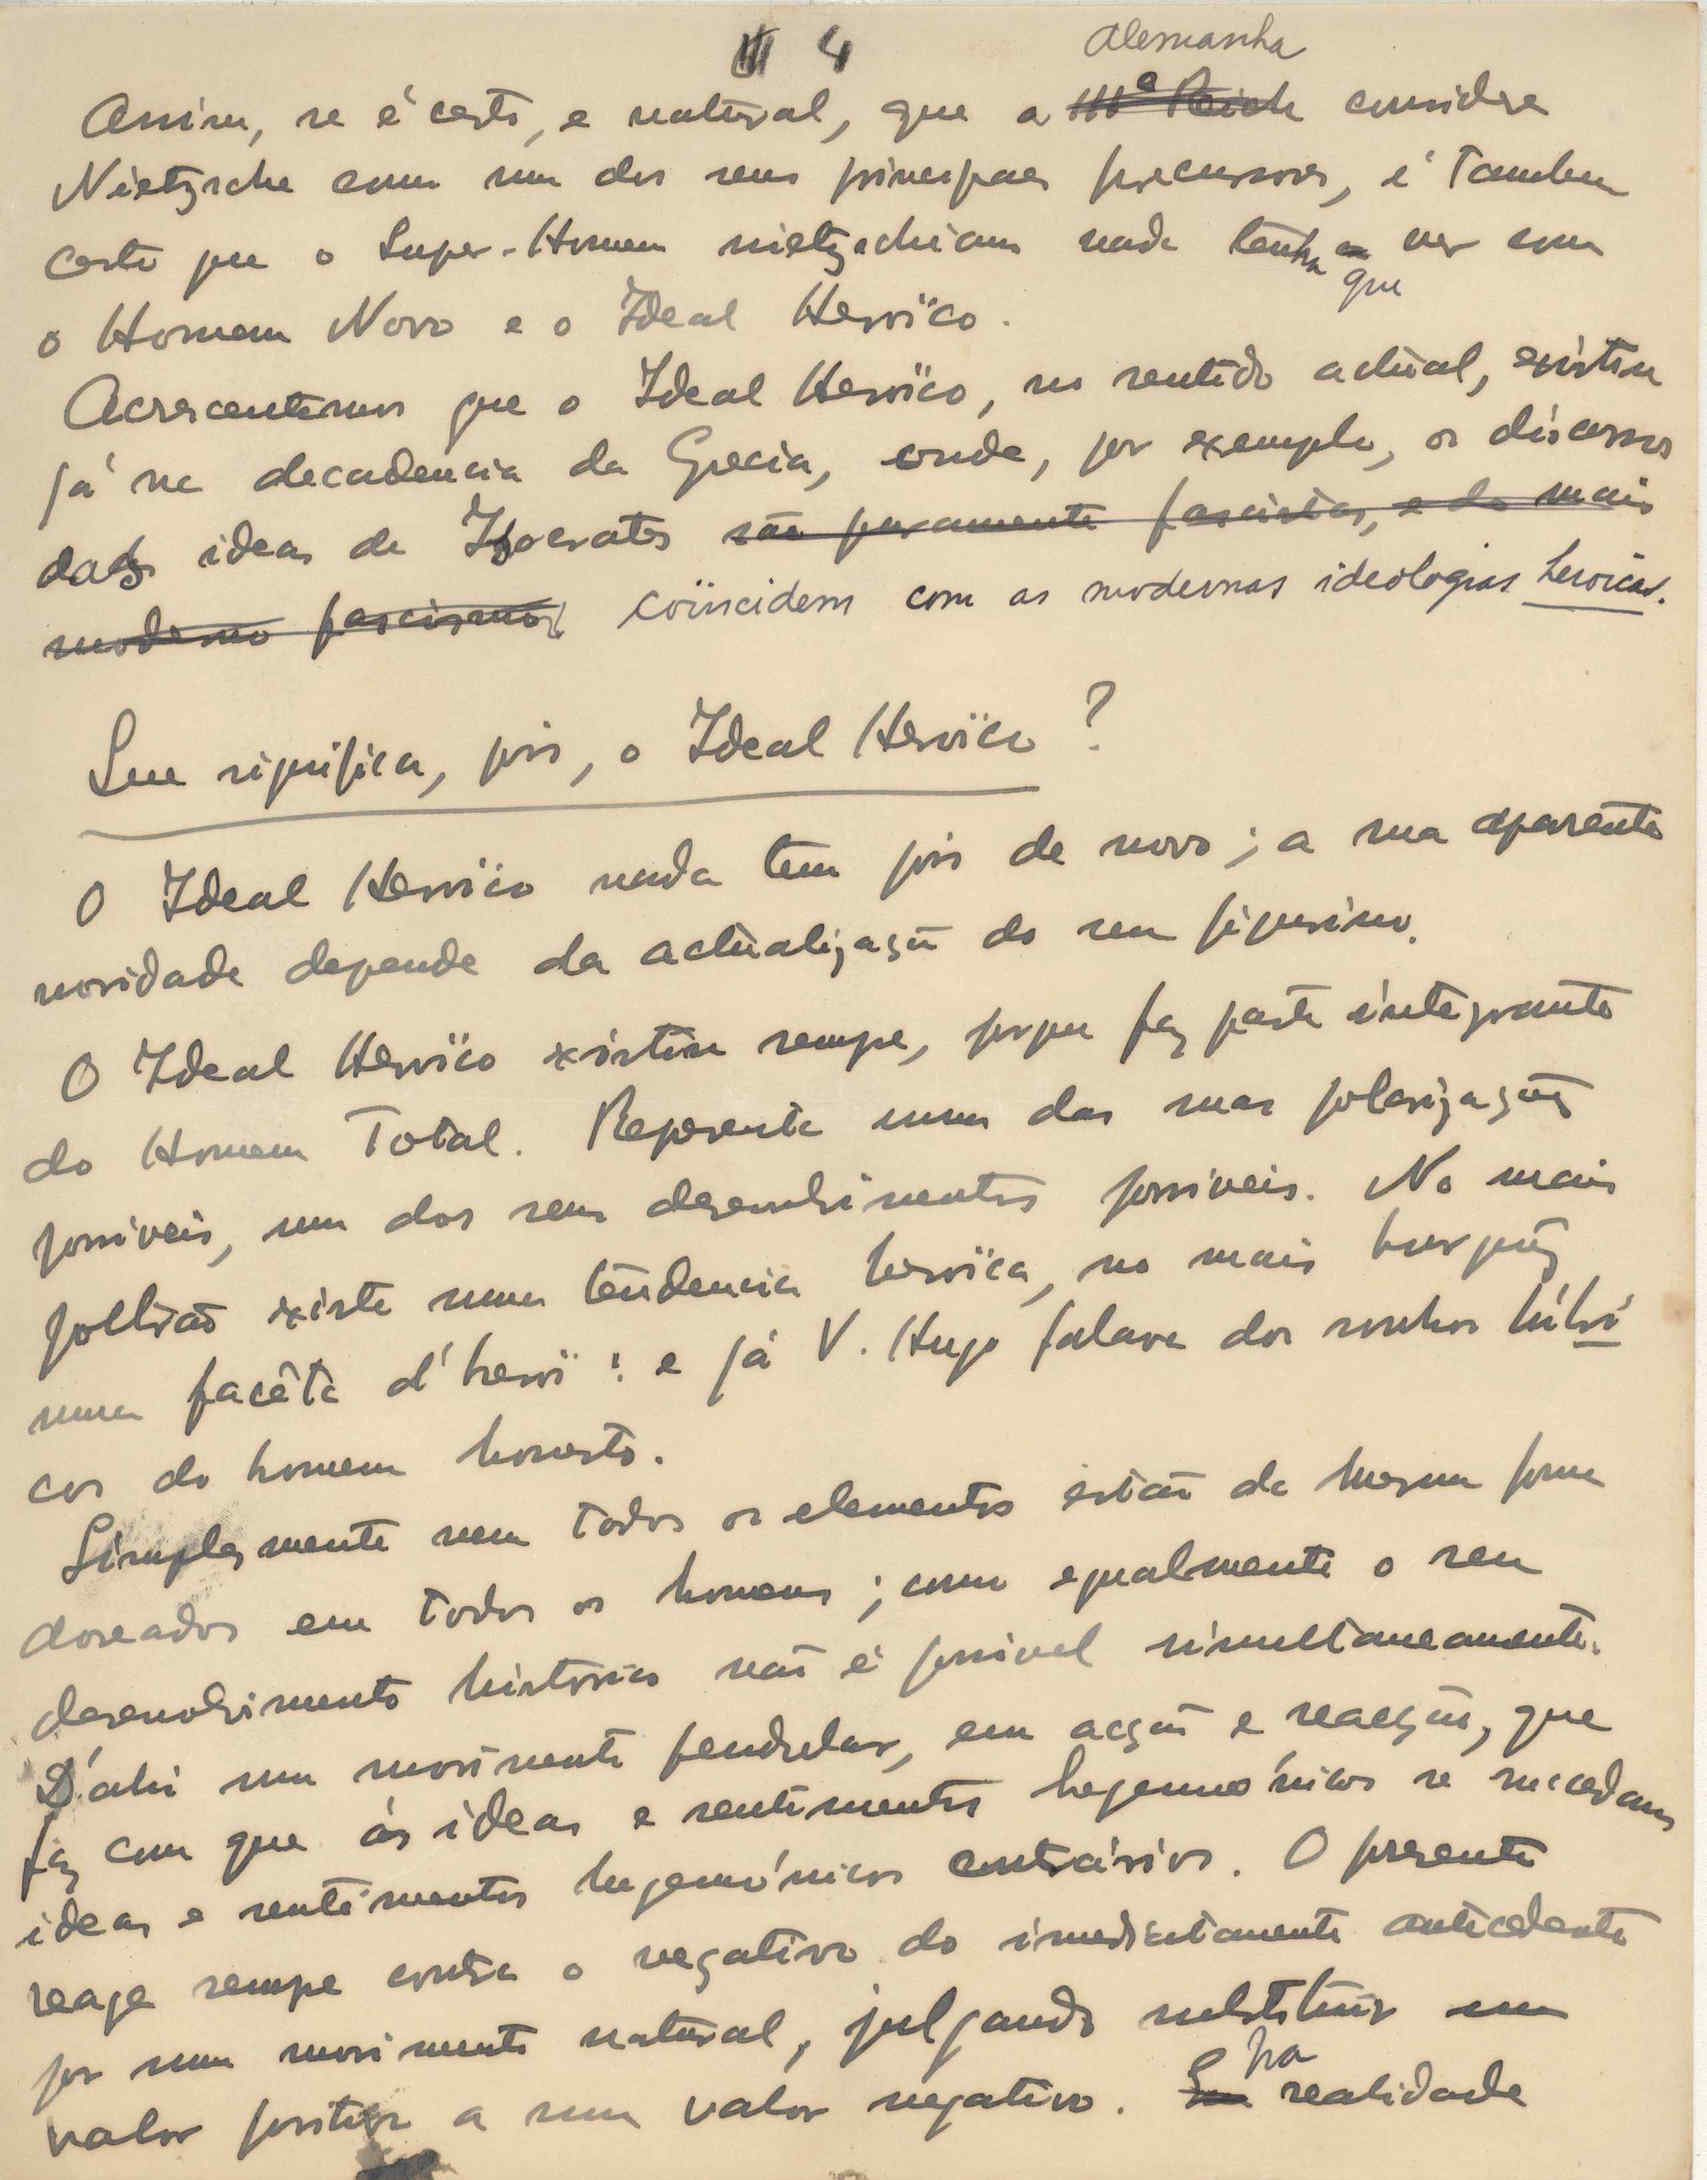 4
Alemanha
Assim, se é certo, e natural, que a IIIº Reich considere
Nietzsche como um dos seus principaes precursores, é tambem
certo que o Super-Homem nietzscheano nada tenha a ver com
que
o Homem Novo e o Ideal Heroïco.
Acrescentemos que o Ideal Heroïco, no sentido actüal, existiu
já na decadencia da Grecia, onde, por exemplo, os discursos
das ideas de Isocrates são puramente fascistas, e do mais
moderno fascismo, coïncidem com as modernas ideologias heroicas.
Que significa, pois, o Ideal Heroïco?
O Ideal Heroïco nada tem pois de novo; a sua aparente
novidade depende da actüalização do seu figurino.
O Ideal Heroïco existiu sempre, porque faz parte integrante
do Homem Total. Representa uma das suas polarizações
possiveis, um dos seus desenvolvimentos possiveis. No mais
poltrão existe uma tendencia heroïca, no mais burguês
uma facêta d'heroï: e já V. Hugo falava dos sonhos lúbri
cos do homem honesto.
Simplesmente nem todos os elementos estão da mesma forma
doseados em todos os homens; como egualmente o seu
desenvolvimento historico não é possivel simultaneamente.
D'ahi um movimento pendular, em acção e reacção, que
faz com que ás ideas e sentimentos hegemónicos se sucedam
ideas e sentimentos hegemónicos contrários. O presente
reage sempre contra o negativo do imediatamente antecedente
por um movimento natüral, julgando substitüir um
valor positivo a um valor negativo. Em realidade
na